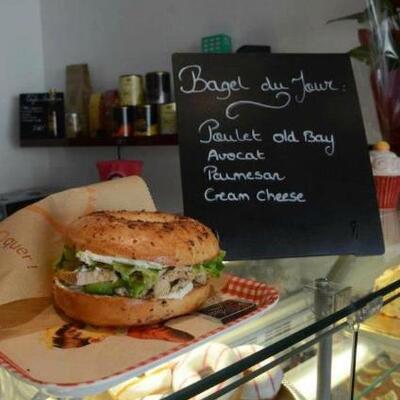 Bagel du Jour:
Poulet old Bay
Avocat
Parmesan
Cream Cheese